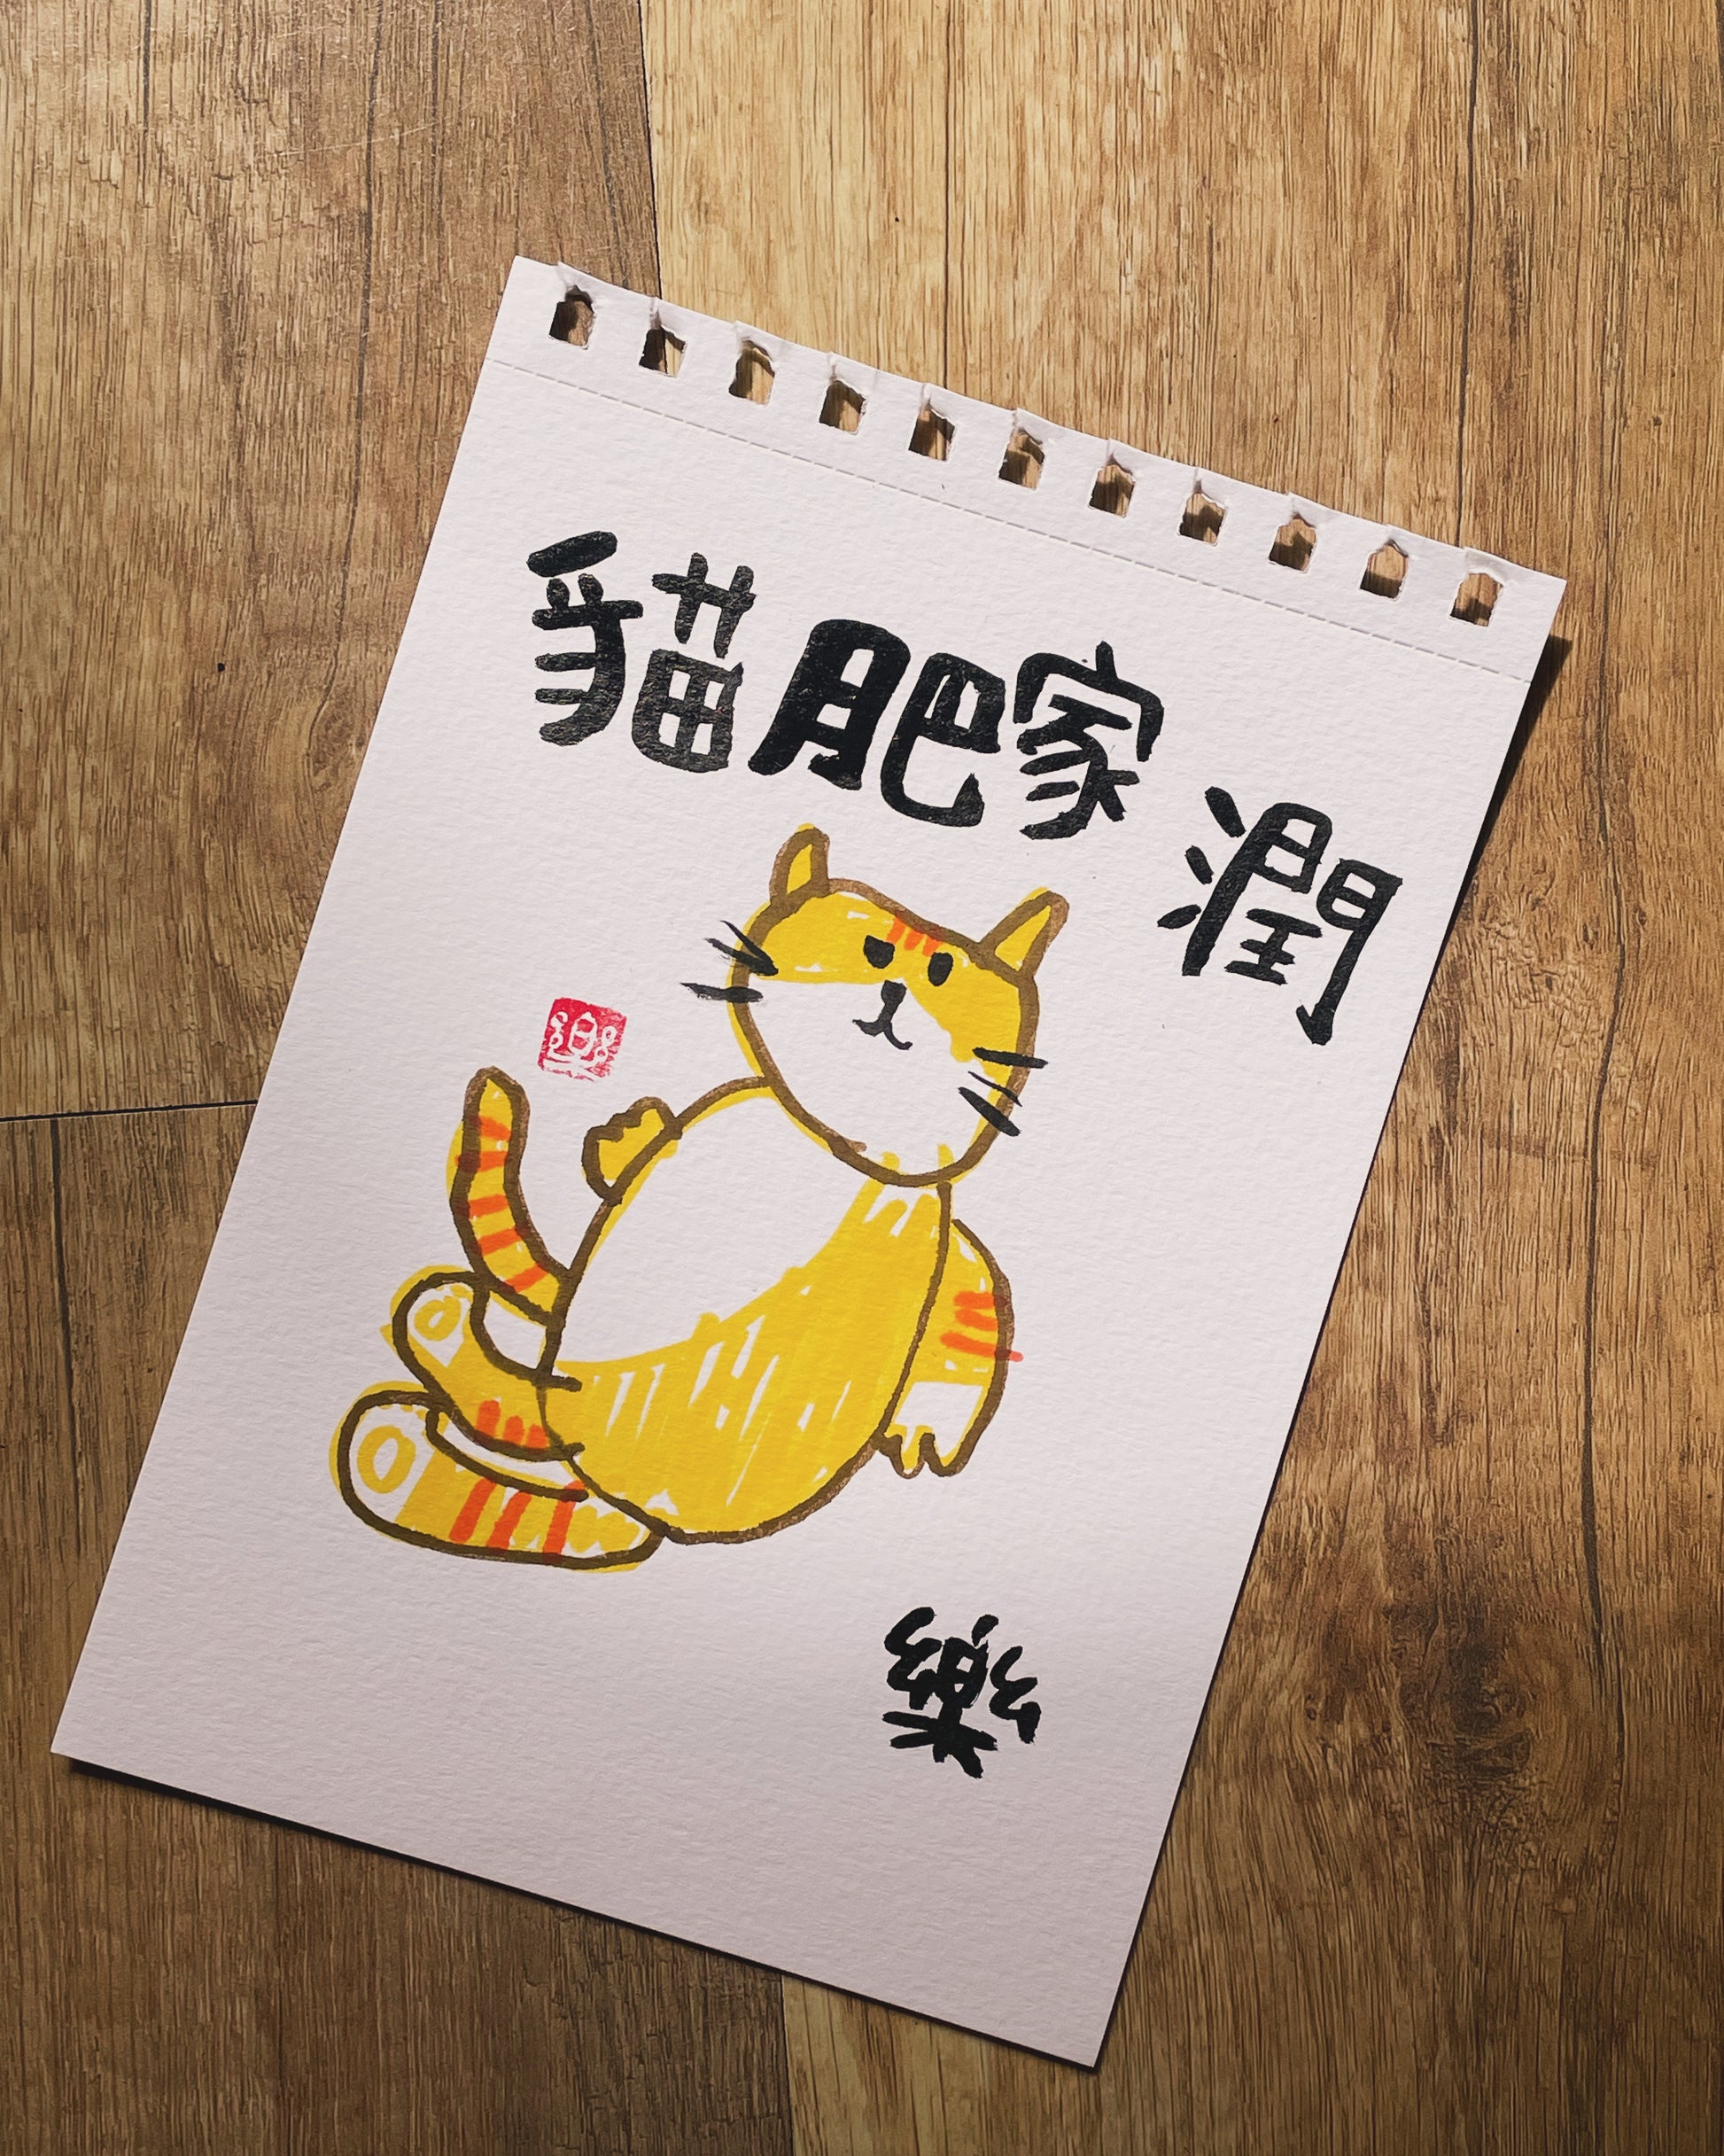 貓肥家潤
樂